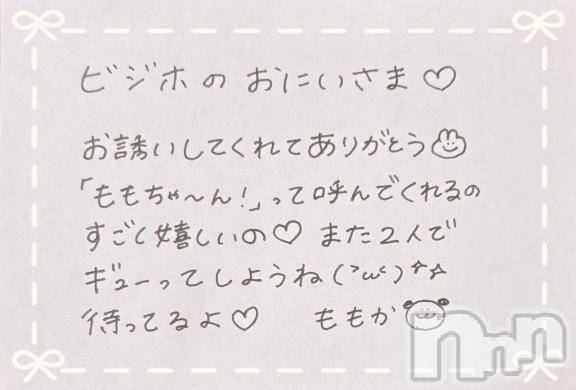 ビジホの おにいさま♡
お誘いしてくれてありがとう
「ももちゃ〜ん！」って呼んでくれるの
すごく嬉しいの♡ また2人で
ギューってしようね(˃ω˂)☆☆
待ってるよ♡ ももか
nnn